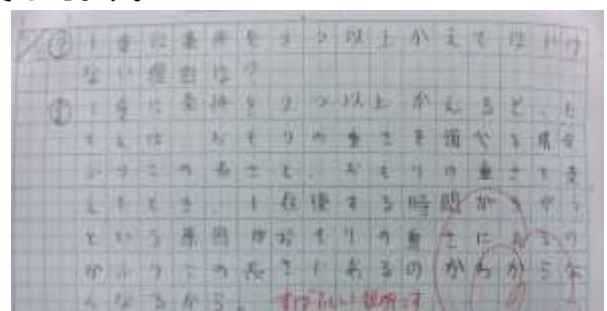 1度に条件を2つ以上かえてはいけ
ない理由は?
1度に条件を2つ以上かえると、た
とえば、おもりの重さを調べる場合
ふりこの長さと、おもりの重さを変
えたとき、1往復する時間が
という原因がおもりの重さにあるの
かふりこの長さにあるのかわからな
くなるから。すばらしい説明です